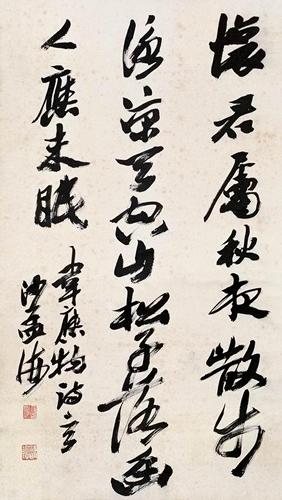 懷君屬秋夜散步
詠涼天空山松子落幽
人應未眠
韋應物詩意
沙孟海